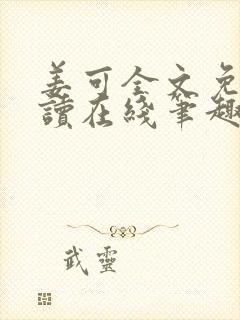 姜可全文免
讀在綫筆趣
武靈